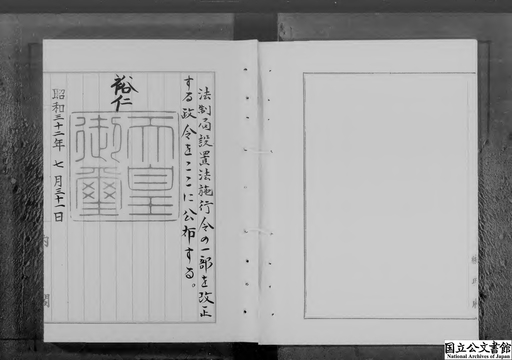 法制局設置法施行令の一部を改正
する政令をここに公布する。
裕仁
天皇
御璽
昭和三十二年七月三十一日
内閣
国立公文書館
National Archives of Japan